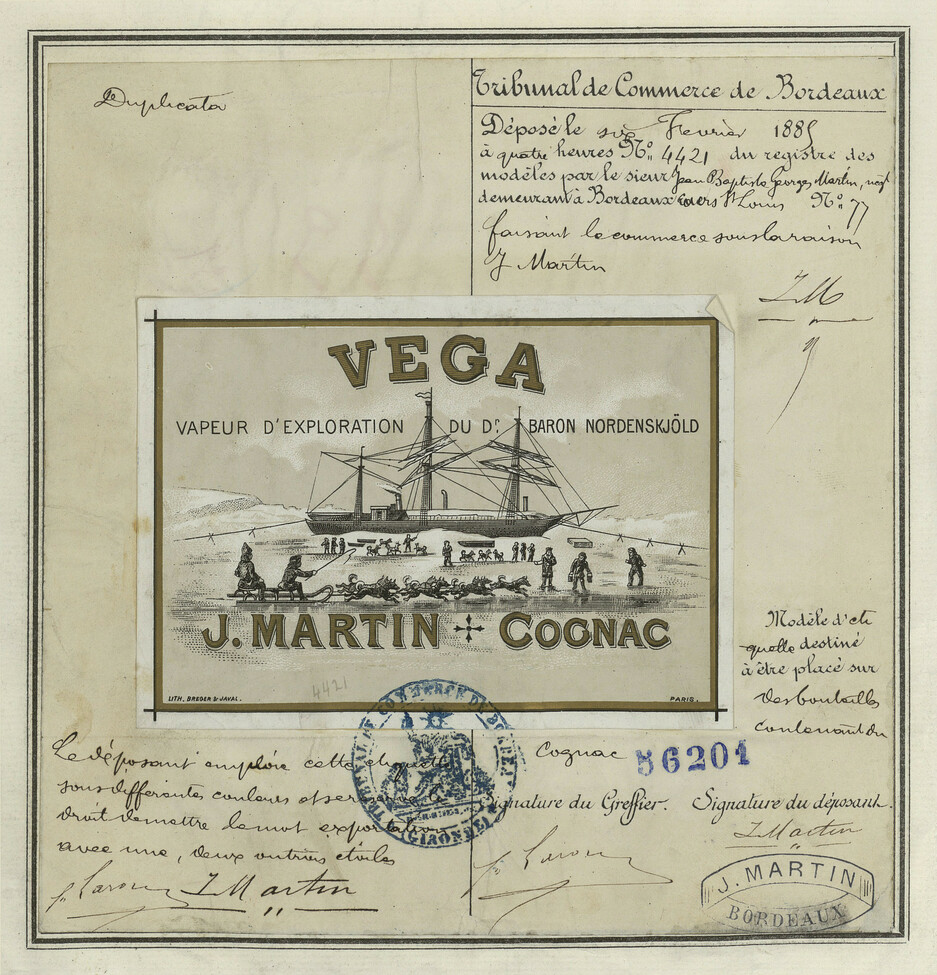 Duplicata
Tribunal de Commerce de Bordeaux
Déposé le six Fevrier 1885
à quatre heures No: 4421 du registre des
modèles par le sieur Jean Baptiste Georges Martin, negt
demeurant à Bordeaux cours St Louis No: 77
faisant le commerce sous la raison
J Martin
JM
VEGA
VAPEUR D'EXPLORATION DU Dr. BARON NORDENSKJÖLD
J. MARTIN COGNAC
LITH. BREGER & JAVAL.
PARIS.
4421
Modèle d'eti
quette destiné
à être placé sur
des bouteilles
contenant du
Cognac
56201
Le déposant emploie cette etiquette
sous différentes couleurs et se reserve le
droit de mettre le mot exportation
avec une, deux ou trois étoiles
J Martin
TRIBUNAL DE COMMERCE DE BORDEAUX
(GIRONDE)
Signature du Greffier.
Signature du déposant.
J Martin
J. MARTIN
BORDEAUX